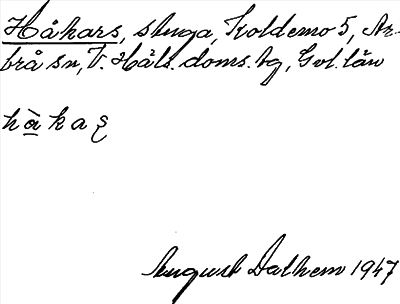 Håkars, stuga, Koldemo 5, Ar-
brå sn, V. Häls. doms. hg, Gvl. län
hà̱kaʂ
August Dalhem 1947